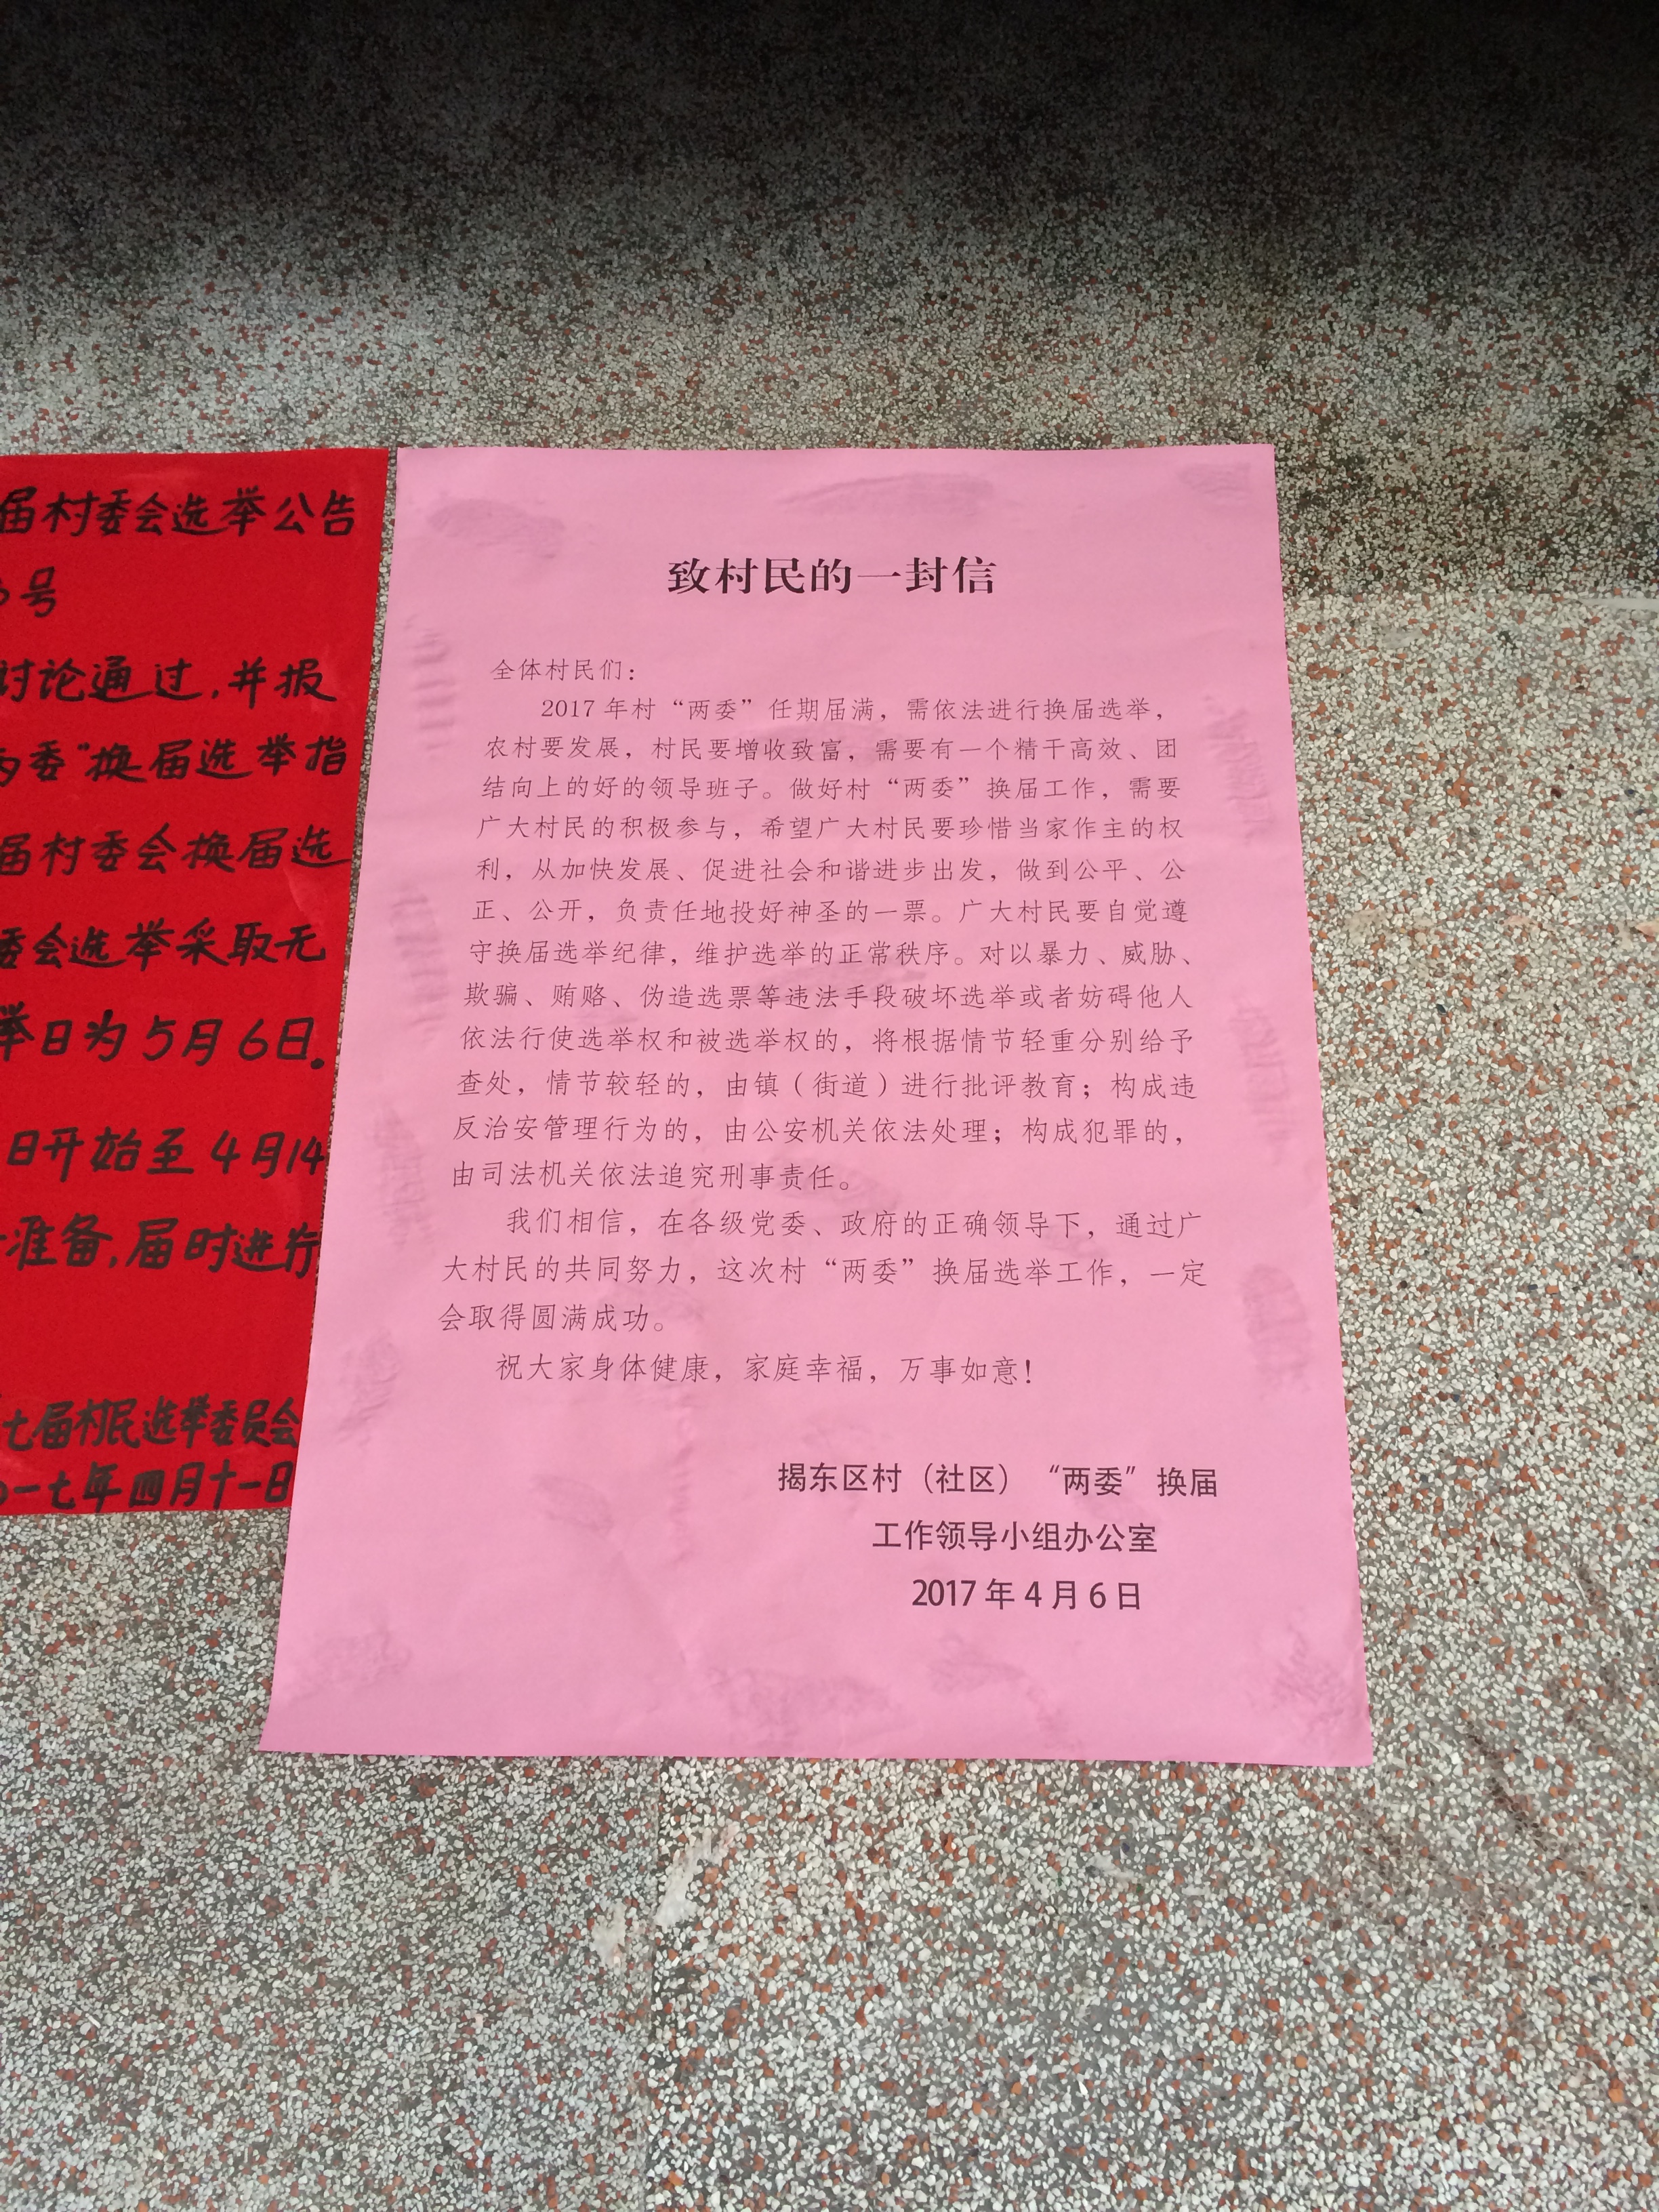 届村委会选举公告
号
讨论通过,并报
委"换届选举指
届村委会换届选
委会选举采取无
举日为5月6日.
日开始至4月14
准备,届时进行
七届村民选举委员会
一七年四月十一日
致村民的一封信
全体村民们：
2017年村“两委”任期届满，需依法进行换届选举，
农村要发展，村民要增收致富，需要有一个精干高效、团
结向上的好的领导班子。做好村“两委”换届工作，需要
广大村民的积极参与，希望广大村民要珍惜当家作主的权
利，从加快发展、促进社会和谐进步出发，做到公平、公
正、公开，负责任地投好神圣的一票。广大村民要自觉遵
守换届选举纪律，维护选举的正常秩序。对以暴力、威胁、
欺骗、贿赂、伪造选票等违法手段破坏选举或者妨碍他人
依法行使选举权和被选举权的，将根据情节轻重分别给予
查处，情节较轻的，由镇（街道）进行批评教育；构成违
反治安管理行为的，由公安机关依法处理；构成犯罪的，
由司法机关依法追究刑事责任。
我们相信，在各级党委、政府的正确领导下，通过广
大村民的共同努力，这次村“两委”换届选举工作，一定
会取得圆满成功。
祝大家身体健康，家庭幸福，万事如意！
揭东区村（社区）“两委”换届
工作领导小组办公室
2017年4月6日